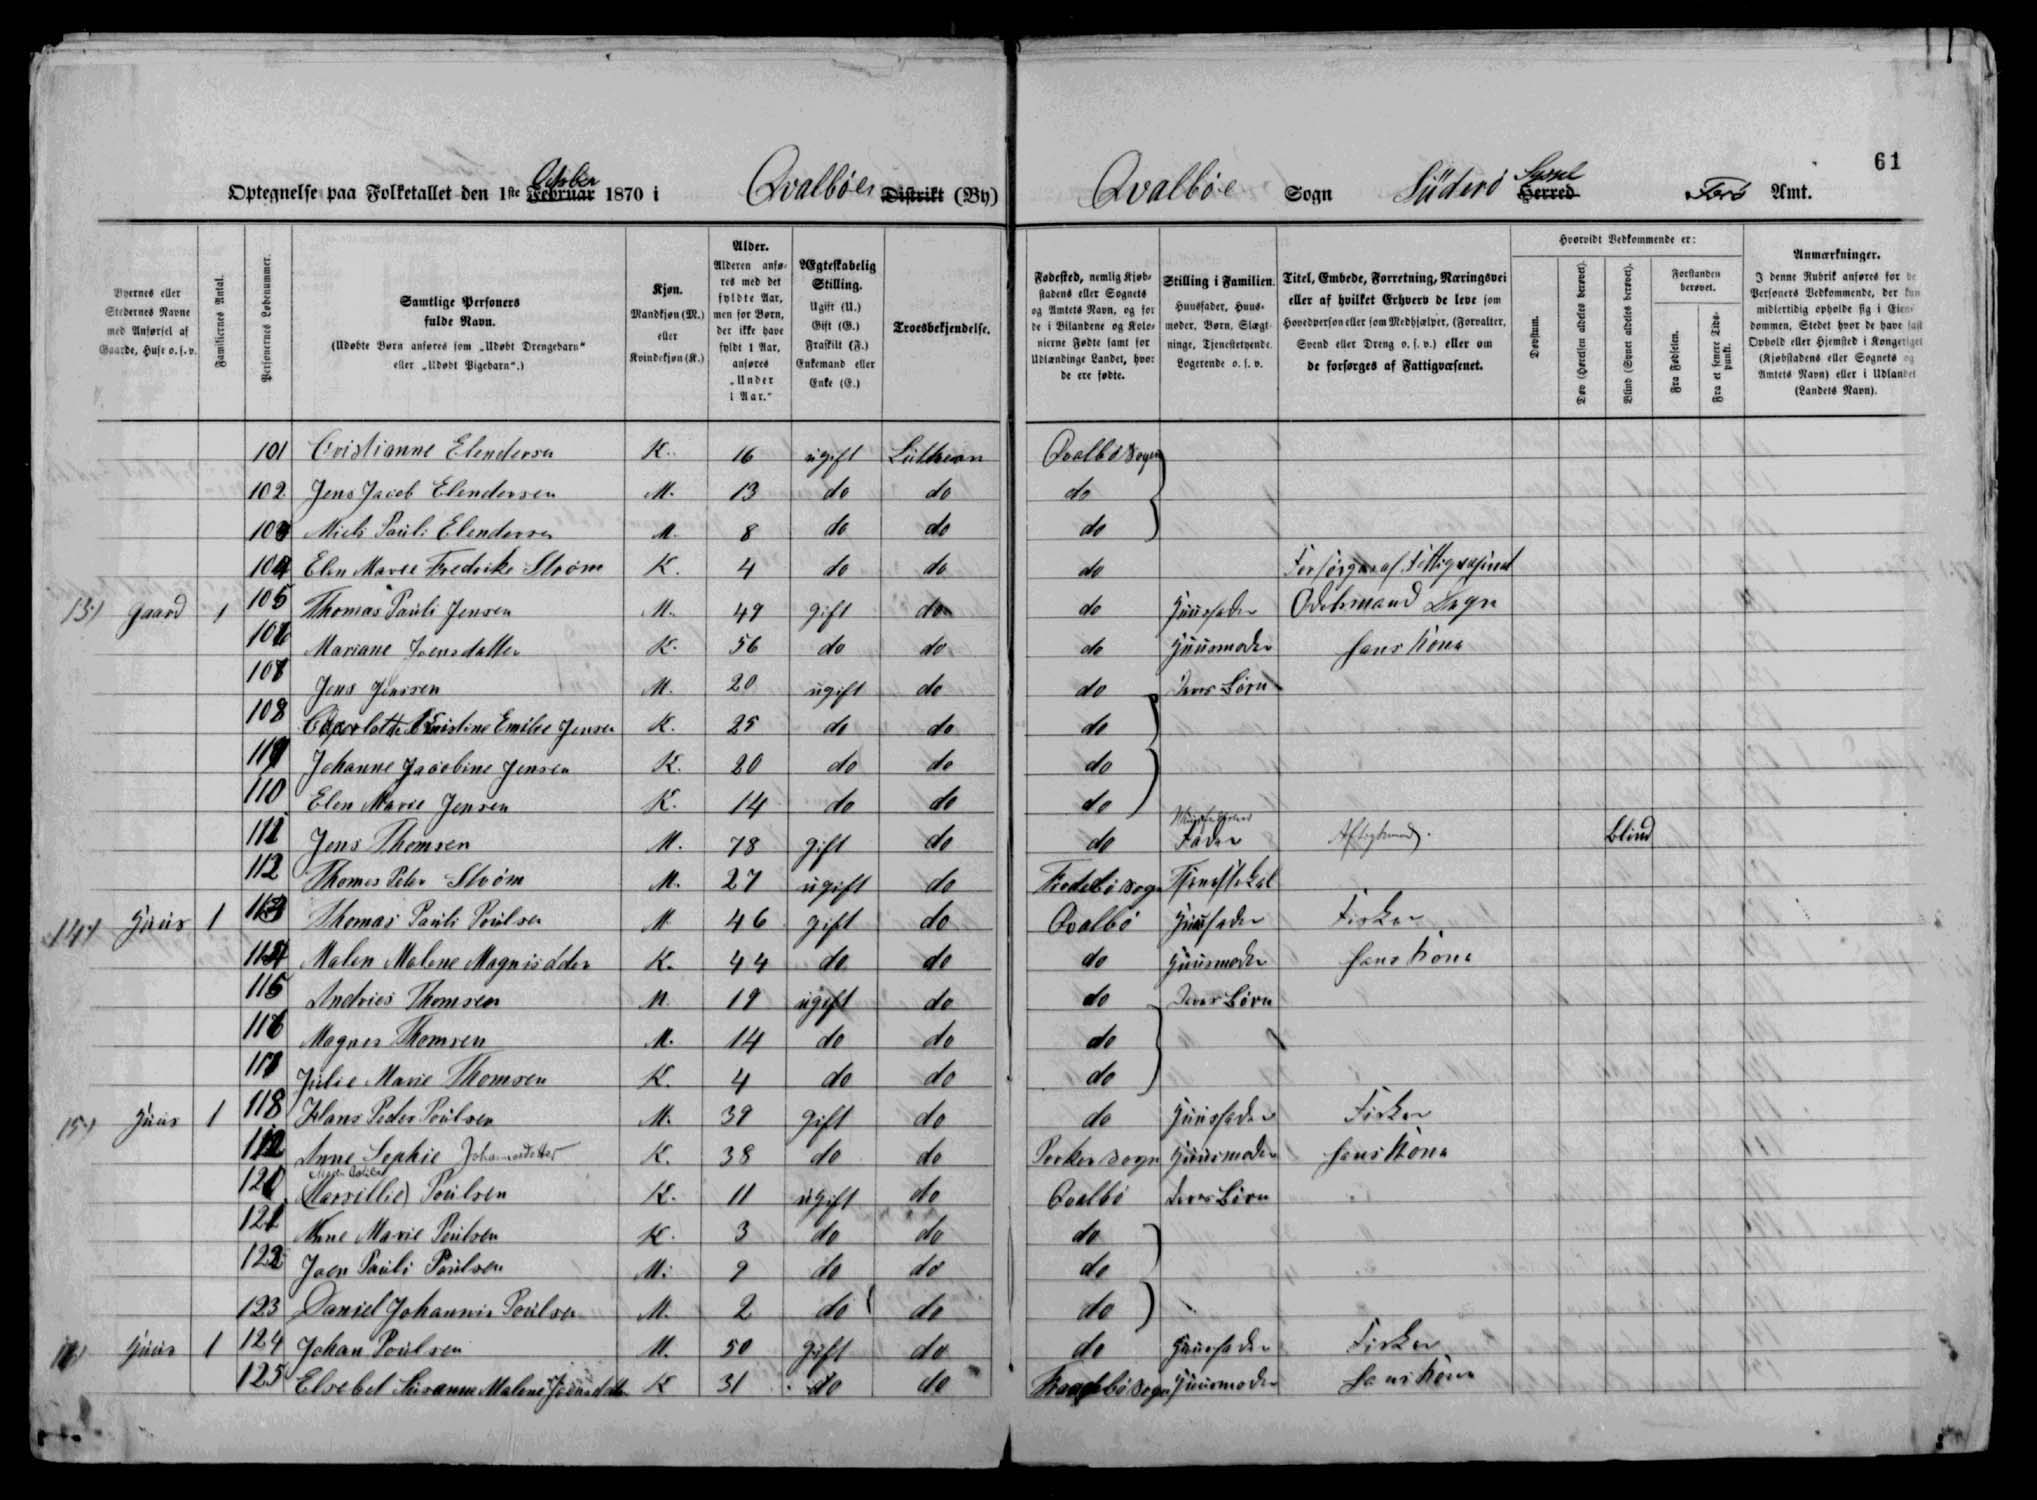 61
Optegnelse paa Folketallet den 1ste Februar October 1870 i Qvalböes Distrikt (By)
Qvalböe Sogn Süderö Herred Syssel Færö Amt.
Byernes eller Stedernes Navne med Anførsel af Gaarde, Huse o. s. v.
Familiernes Antal.
Personernes Løbenummer.
Samtlige Personers fulde Navn.
(Udøbte Børn anføres som „Udøbt Drengebarn“ eller „Udøbt Pigebarn“.)
Kjøn. Mandkjøn (M.) eller Kvindekjøn (K.)
Alder. Alderen anføres med det fyldte Aar, men for Børn, der ikke have fyldt 1 Aar, anføres „Under 1 Aar.“
Ægteskabelig Stilling. Ugift (U.) Gift (G.) Fraskilt (F.) Enkemand eller Enke (E.)
Troesbekjendelse.
Fødested, nemlig Kjøbstadens eller Sognets og Amtets Navn, og for de i Bilandene og Kolonierne Fødte samt for Udlændinge Landet, hvor de ere fødte.
Stilling i Familien. Huusfader, Huusmoder, Børn, Slægtninge, Tjenestetyende, Logerende o. s. v.
Titel, Embede, Forretning, Næringsvei eller af hvilket Erhverv de leve som Hovedperson eller som Medhjælper, (Forvalter, Svend eller Dreng o. s. v.) eller om de forsørges af Fattigvæsenet.
Hvorvidt Vedkommende er:
Døvstum.
Døv (Hørelsen aldeles berøvet).
Blind (Synet aldeles berøvet).
Forstanden berøvet.
Fra Fødselen.
Fra et senere Tidspunkt.
Anmærkninger.
I denne Rubrik anføres for de Personers Vedkommende, der kun midlertidig opholde sig i Eiendommen, Stedet hvor de have fast Ophold eller Hjemsted i Kongeriget (Kjøbstadens eller Sognets og Amtets Navn) eller i Udlandet (Landets Navn).
101 Cristianne Elendersen K. 16 ugift Lutheran Qvalbö Sogn
102 Jens Jacob Elendersen M. 13 do do do
103 Niels Pauli Elendersen M. 8 do do do
104 Elen Marie Fredrike Strøm K. 4 do do do Forsörges af Fattigvæsenet
13) Gaard 1 105 Thomas Pauli Jensen M. 49 gift do do Huusfader Odelsmand
106 Mariane Joensdatter K. 56 do do do Huusmoder hans Kone
107 Jens Jenssen M. 20 ugift do do Deres Börn
108 Charlotte Cristine Emilie Jensen K. 25 do do do
119 Johanne Jacobine Jensen K. 20 do do do
110 Elen Marie Jensen K. 14 do do do
111 Jens Thomsen M. 78 gift do do Fader Aftægtsmand. blind
112 Thomas Peter Strøm M. 27 ugift do Sogn Tjenestekal
14) Huus 1 113 Thomas Pauli Poulsen M 46 gift do Qvalbö Huusfader Fisker
114 Malen Malene Magnisdder K. 44 do do do Huusmoder hans Kone
115 Andries Thomsen M. 19 ugift do do Deres Börn
116 Magnes Thomsen M. 14 do do do
117 Julie Marie Thomsen K. 4 do do do
15) Huus 1 118 Hans Peder Poulsen M. 39 gift do do Huusfader Fisker
112 Anne Sophie Johannesdatter K. 38 do do Porkeri Sogn Huusmoder hans Kone
120 (Marsillie) Poulsen K. 11 ugift do Qvalbö Deres Börn
121 Anne Marie Poulsen K. 3 do do do
122 Joen Pauli Poulsen M. 9 do do do
123 Daniel Johannis Poulsen M. 2 do do do
16) Huus 1 124 Johan Poulsen M. 50 gift do do Huusfader Fisker
125 Elsebet Susanne Malene Joensdatter K 31 do do Sogn Huusmoder hans Kone